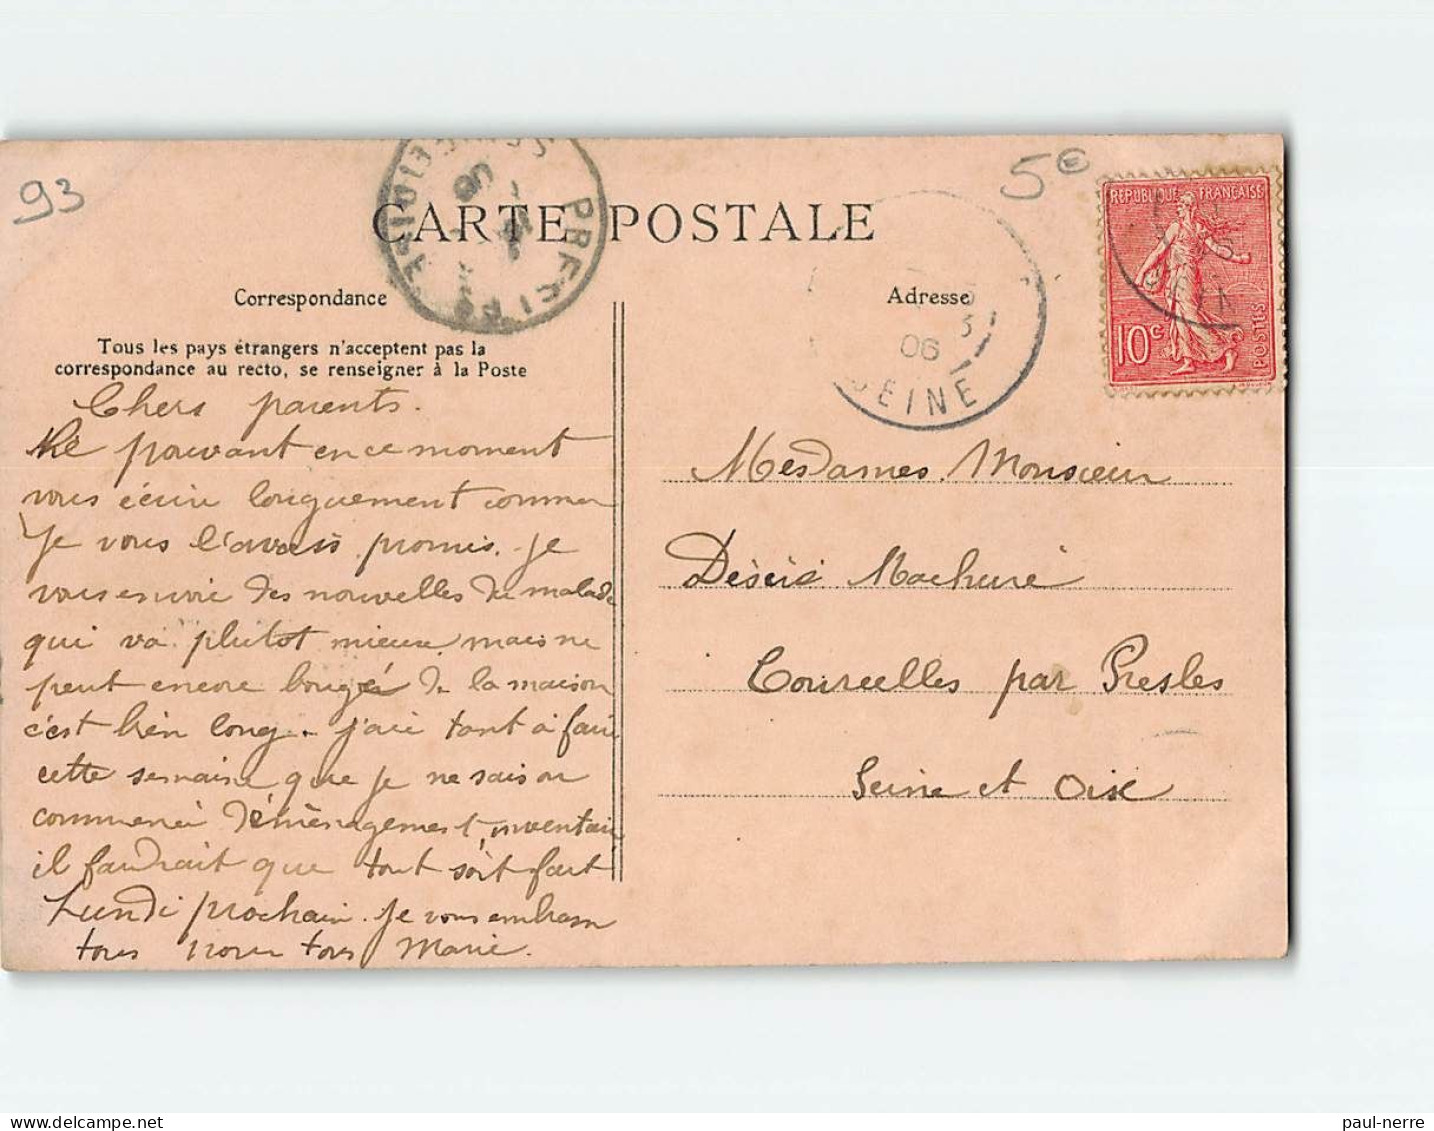 93
5€
CARTE POSTALE
PRESLES
SEINE-ET-OISE
06
SEINE
3
06
REPUBLIQUE FRANÇAISE
10c
POSTES
Correspondance
Adresse
Tous les pays étrangers n'acceptent pas la
correspondance au recto, se renseigner à la Poste
Chers parents.
Ne pouvant en ce moment
vous écrire longuement comme
Je vous l'avais promis. Je
vous envoie des nouvelles du malade
qui va plutot mieux mais ne
peut encore bougé de la maison
c'est bien long. J'ai tant à faire
cette semaine que je ne sais ou
commencé déménagement, inventaire
il faudrait que tout soit fait
Lundi prochain. Je vous embrasse
tous pour tous Marie.
Mesdames. Monsieur
Désiré Machuré
Courcelles par Presles
Seine et Oise
paul-nerre